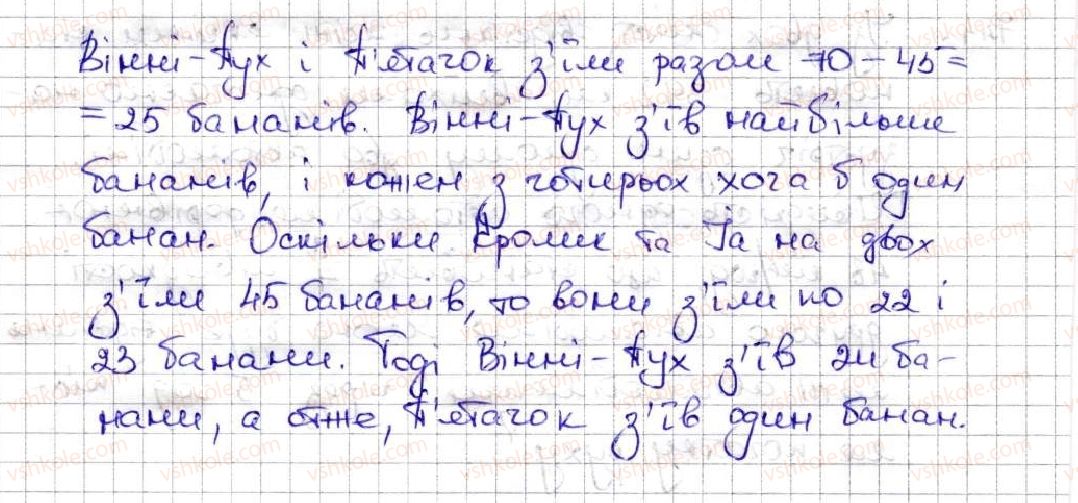 Вінні-Пух і П'ятачок з'їли разом 70-45=
=25 бананів. Вінні-Пух з'їв найбільше
бананів, і кожен з чотирьох хоча б один
банан. Оскільки Кролик та Іа на двох
з'їли 45 бананів, то вони з'їли по 22 і
23 банани. Тоді Вінні-Пух з'їв 24 ба-
нани, а отже, П'ятачок з'їв один банан.